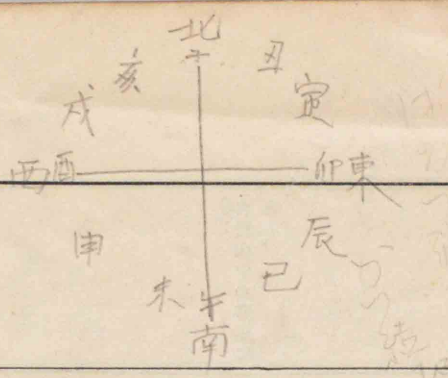 北
子
丑
亥
寅
戌
西酉
卯東
申
辰
未
巳
午
南